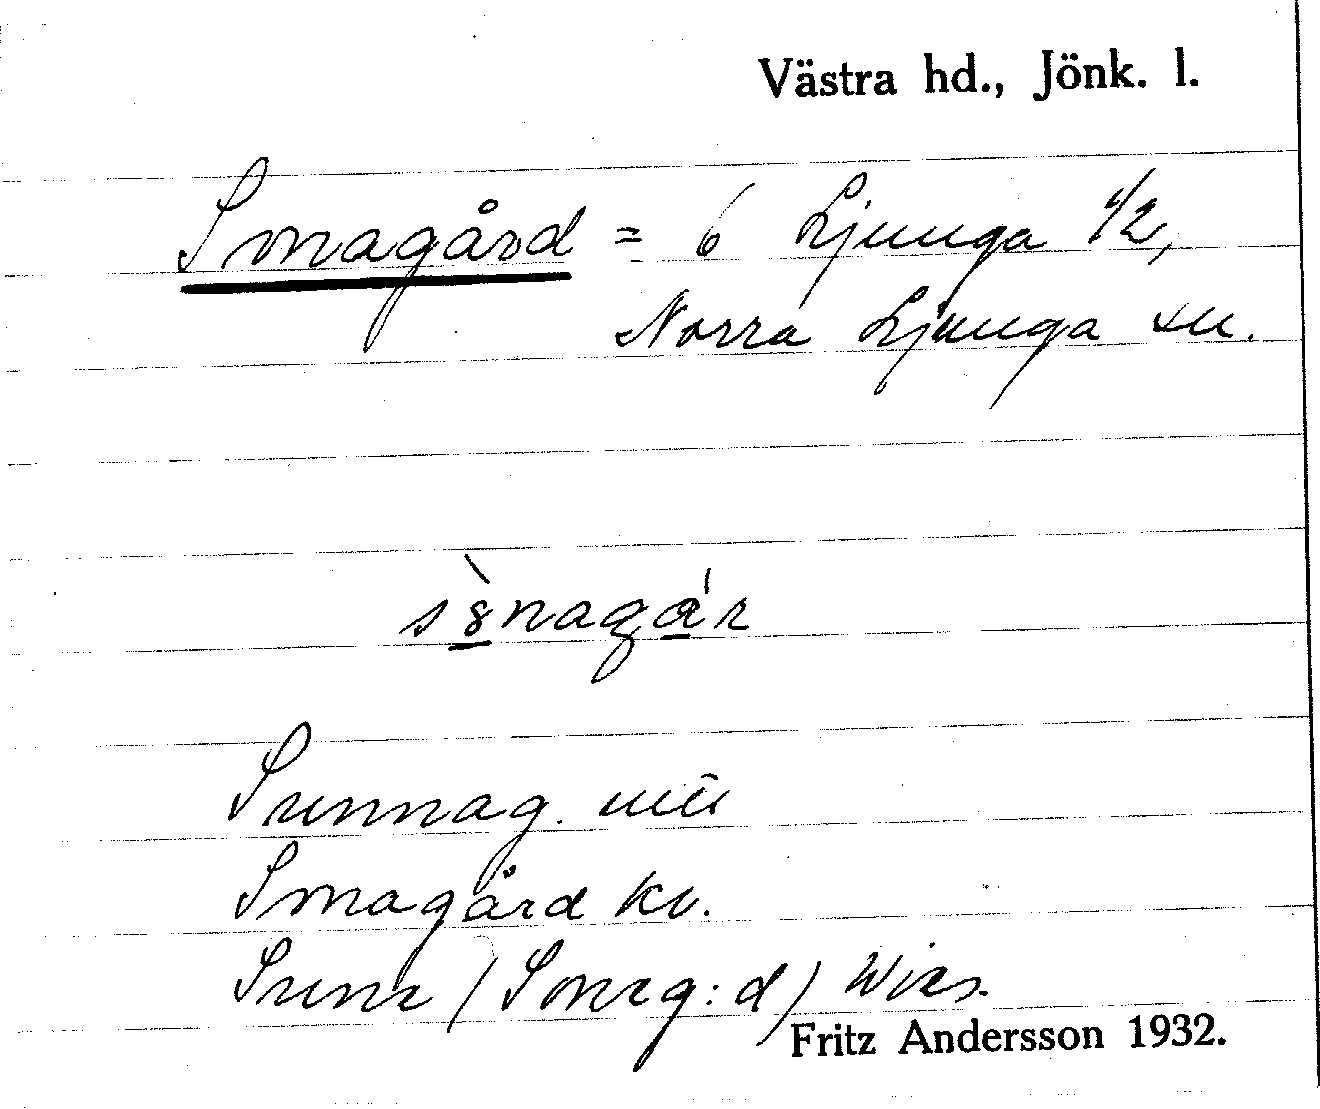 Västra hd., Jönk. l.
Sonagård = 6 Ljunga 1/2,
Norra Ljunga sn.
s8̀nagár
Sunnag.
Sonagård kv.
Sune (Soneg:d) Wies.
Fritz Andersson 1932.